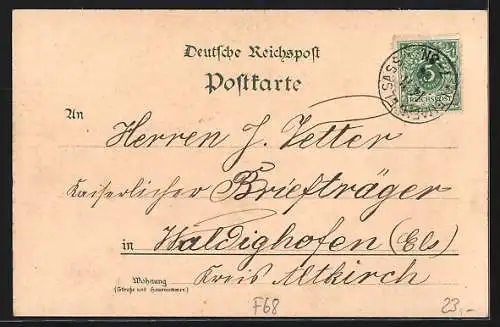 Deutsche Reichspost
Postkarte
5
REICHSPOST
An
Herren J. Vetter
Kaiserlicher Briefträger
in Waldighofen (Els)
Kreis Altkirch
Wohnung
(Straße und Hausnummer)
F68
23,-